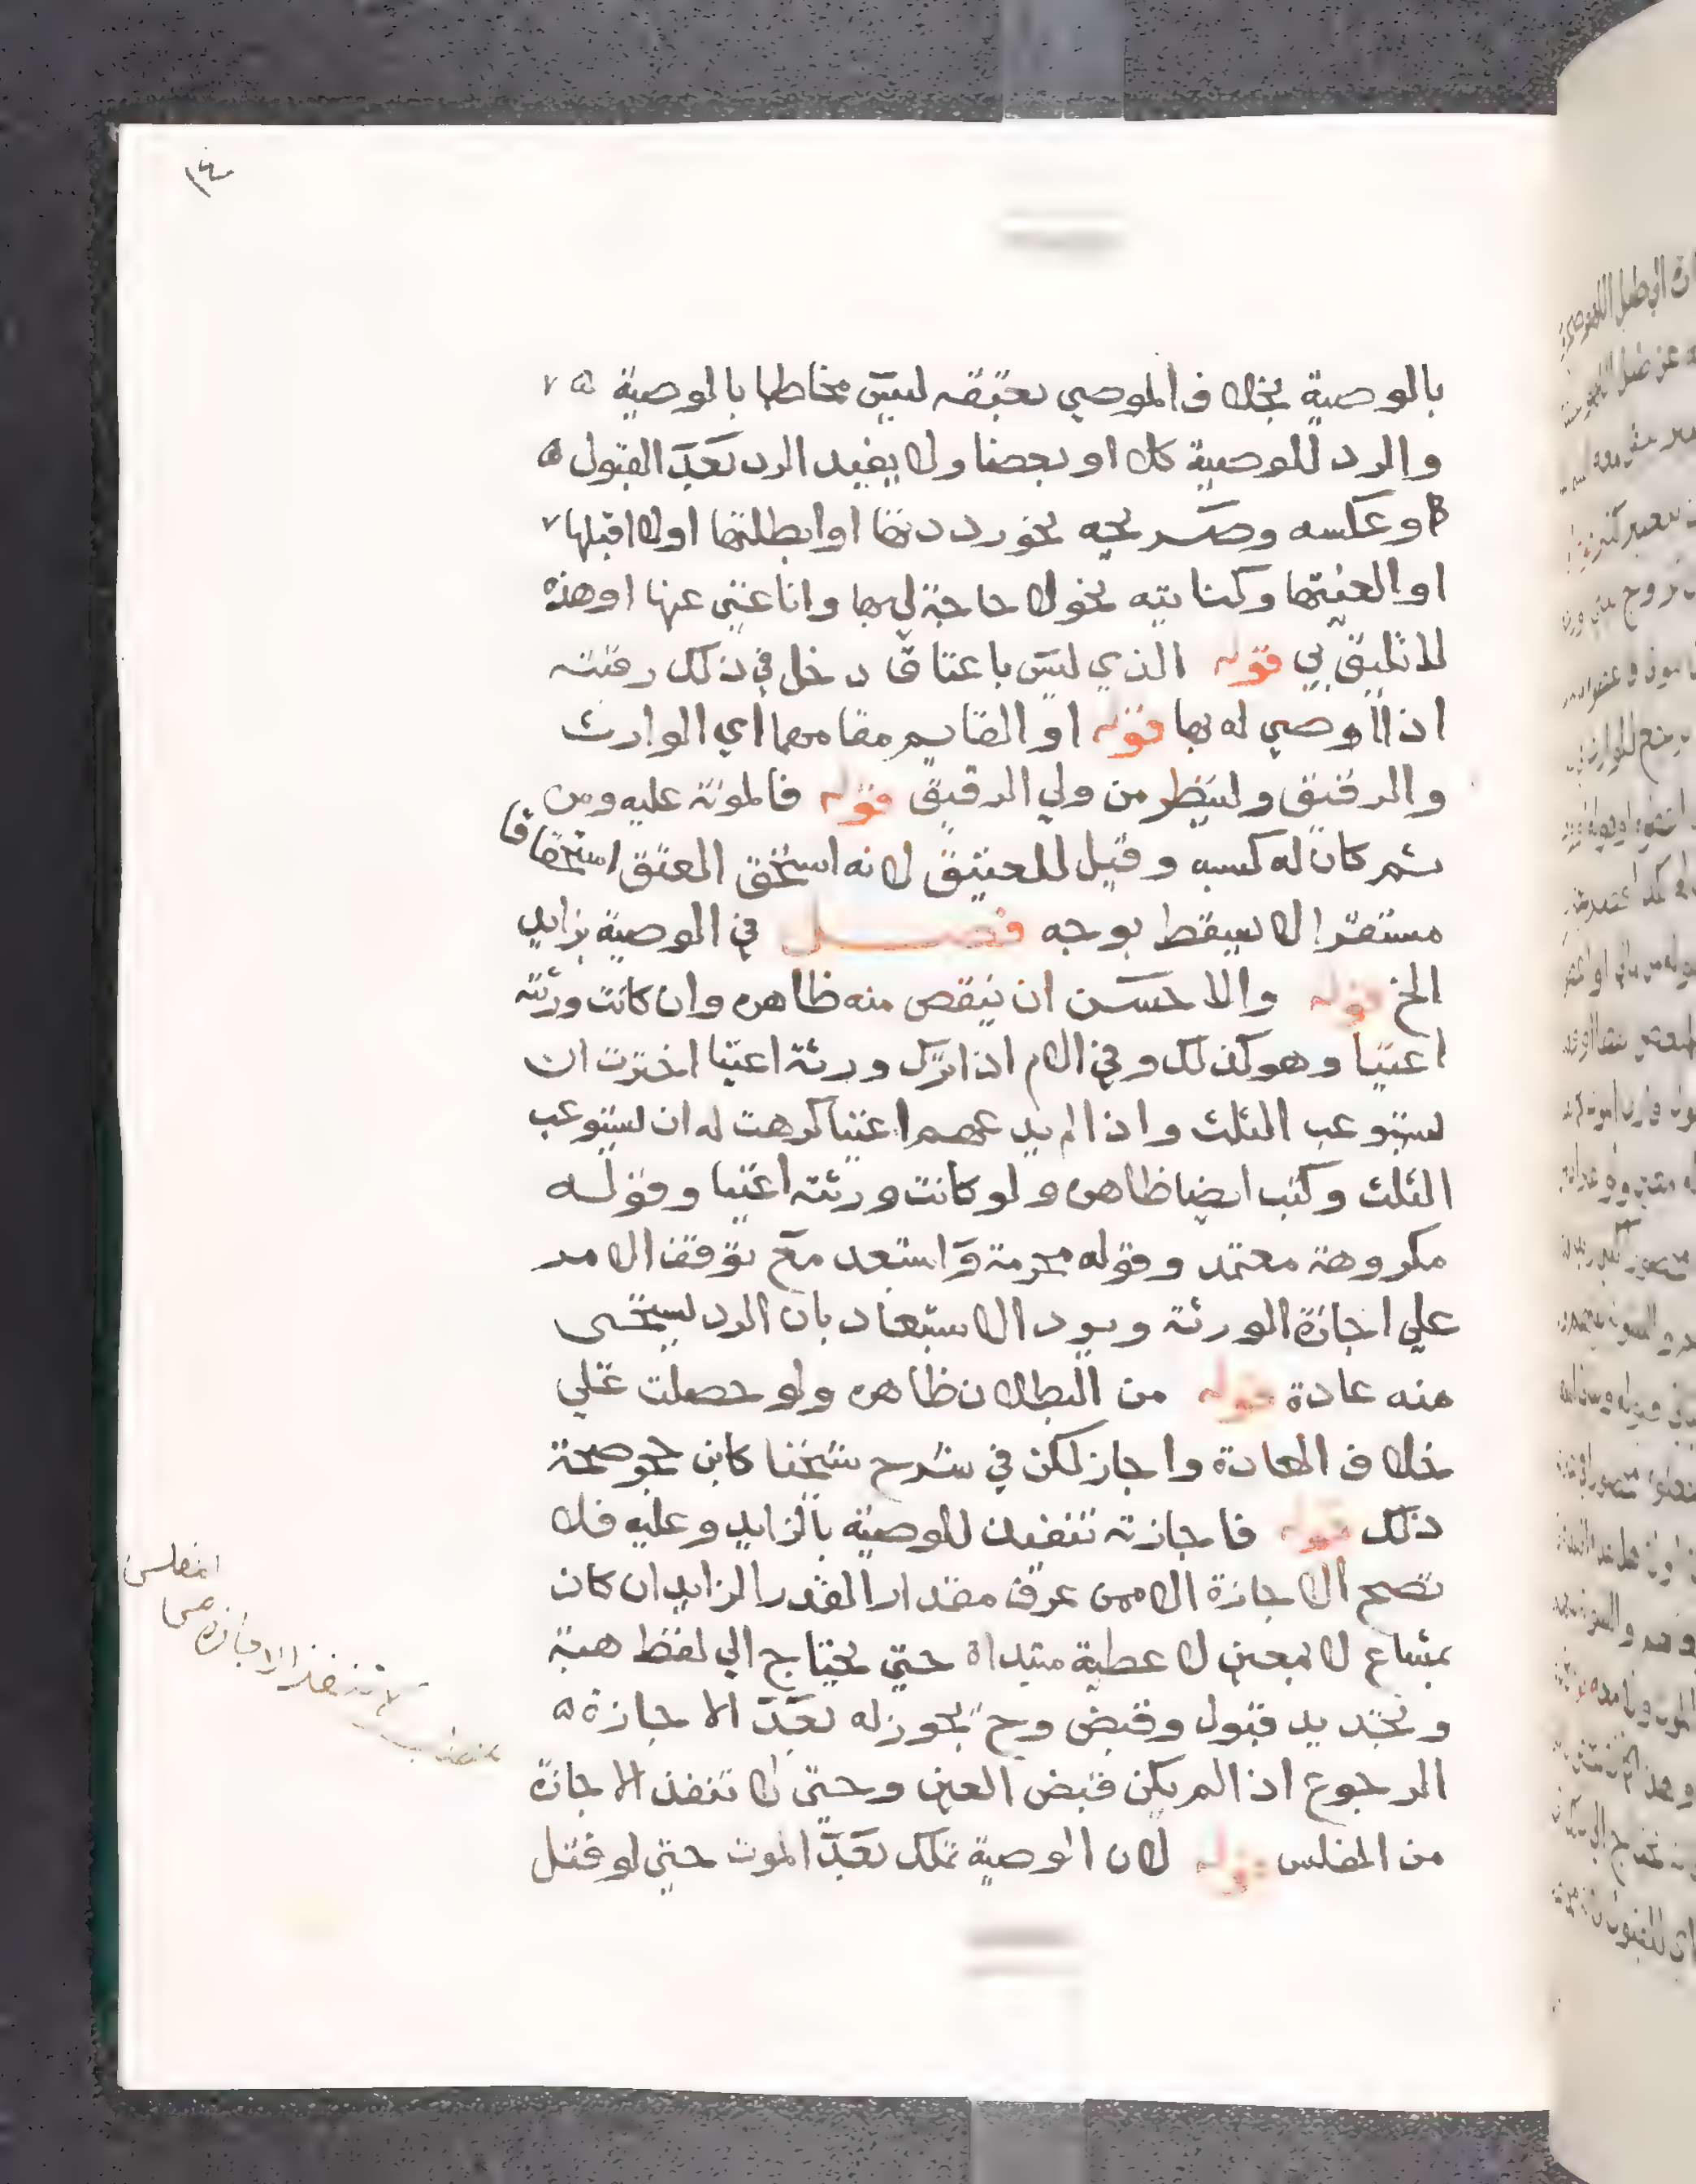 بالوصية بخلاف الموصي بعتقه ليس مخاطبا بالوصية
والرد للوصية كلا او بعضا ولا يفيد الرد بعد القبول
او عكسه وصريحه نحو رددتها او ابطلتها او لا اقبلها
او الغيتها وكنايته نحو لا حاجة لي بها وانا غني عنها او هذه
لا تليق بي قوله الذي ليس باعتاق دخل في ذلك رقبته
اذا اوصي له بها قوله او القايم مقامهما اي الوارث
والرقيق ولينظر من ولي الرقيق قوله فالمونة عليه ومن
ثم كان له كسبه وقيل للعتيق لانه استحق العتق استحقاقا
مستقرا لا يسقط بوجه فصل في الوصية بزايد
الخ قوله والاحسن ان ينقص منه ظاهره وان كانت ورثته
اغنيا وهو كذلك وفي الام اذا ترك ورثة اغنيا اخترت ان
يستوعب الثلث واذا لم يدعهم اغنيا كرهت له ان يستوعب
الثلث وكتب ايضا ظاهره ولو كانت ورثته اغنيا وقوله
مكروهة معتمد وقوله محرمة واستبعد مع توقف الامر
علي اجازة الورثة ويرد الاستبعاد بان الرد يستحى
منه عادة قوله من البطلان ظاهره ولو حصلت علي
خلاف العادة واجاز لكن في شرح شيخنا كابن حجر صحة
ذلك قوله فاجازته تنفيذ للوصية بالزايد وعليه فلا
تصح الاجازة الا ممن عرف مقدار القدر الزايد ان كان
بمشاع لا بمعين لا عطية مبتداة حتي يحتاج الي لفظ هبة
وتجديد قبول وقبض وح يجوز له بعد الاجازة
الرجوع اذا لم يكن قبض العين وحتى لا تنفذ الاجازة
من المفلس قوله لان الوصية تملك بعد الموت حتى لو قتل
لا تنفذ الاجازة من
المفلس